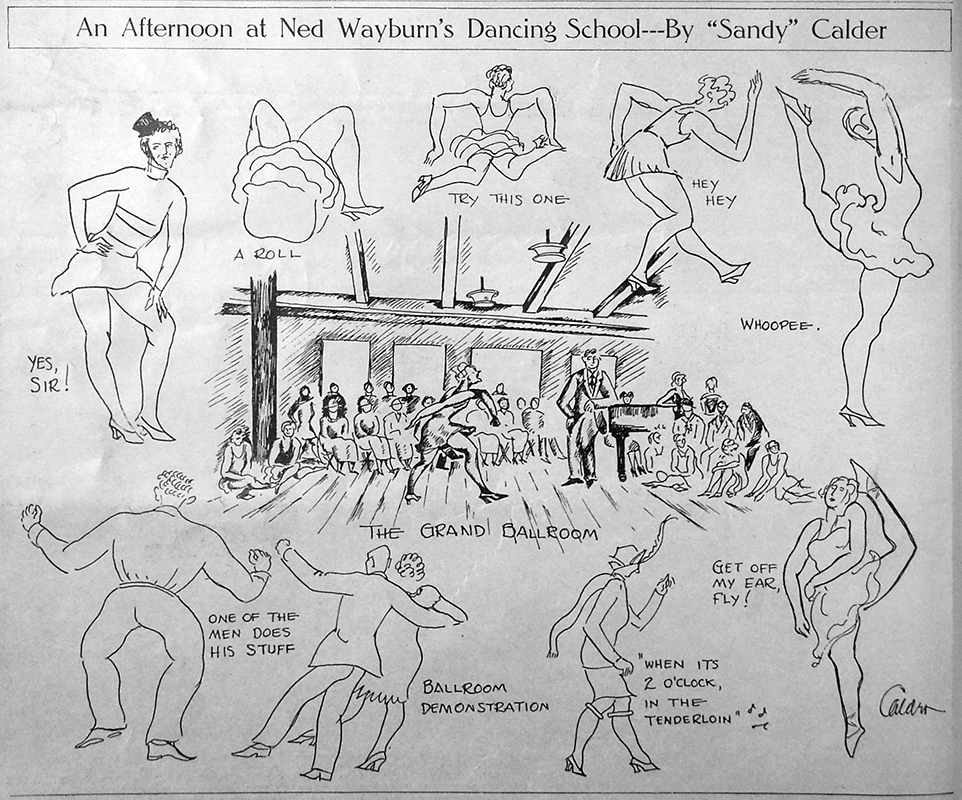 An Afternoon at Ned Wayburn's Dancing School---By "Sandy" Calder
TRY THIS ONE
HEY
HEY
A ROLL
WHOOPEE.
YES,
SIR!
THE GRAND BALLROOM
GET OFF
MY EAR,
FLY!
ONE OF THE
MEN DOES
HIS STUFF
"WHEN ITS
2 O'CLOCK,
IN THE
TENDERLOIN"
BALLROOM
DEMONSTRATION
Calder